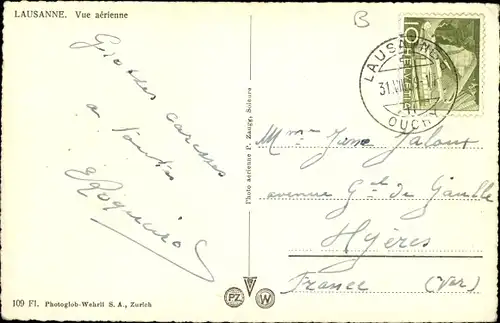 LAUSANNE. Vue aérienne
B
10
HELVETIA
LAUSANNE
31.VIII
OUCHY
Grosses caresses
a toutes
Mme Jane Jaloux
avenue Gal de Gaulle
Hyères
France (Var)
Photo aérienne P. Zaugg, Soleure
PZ W
109 Fl. Photoglob-Wehrli S. A., Zurich